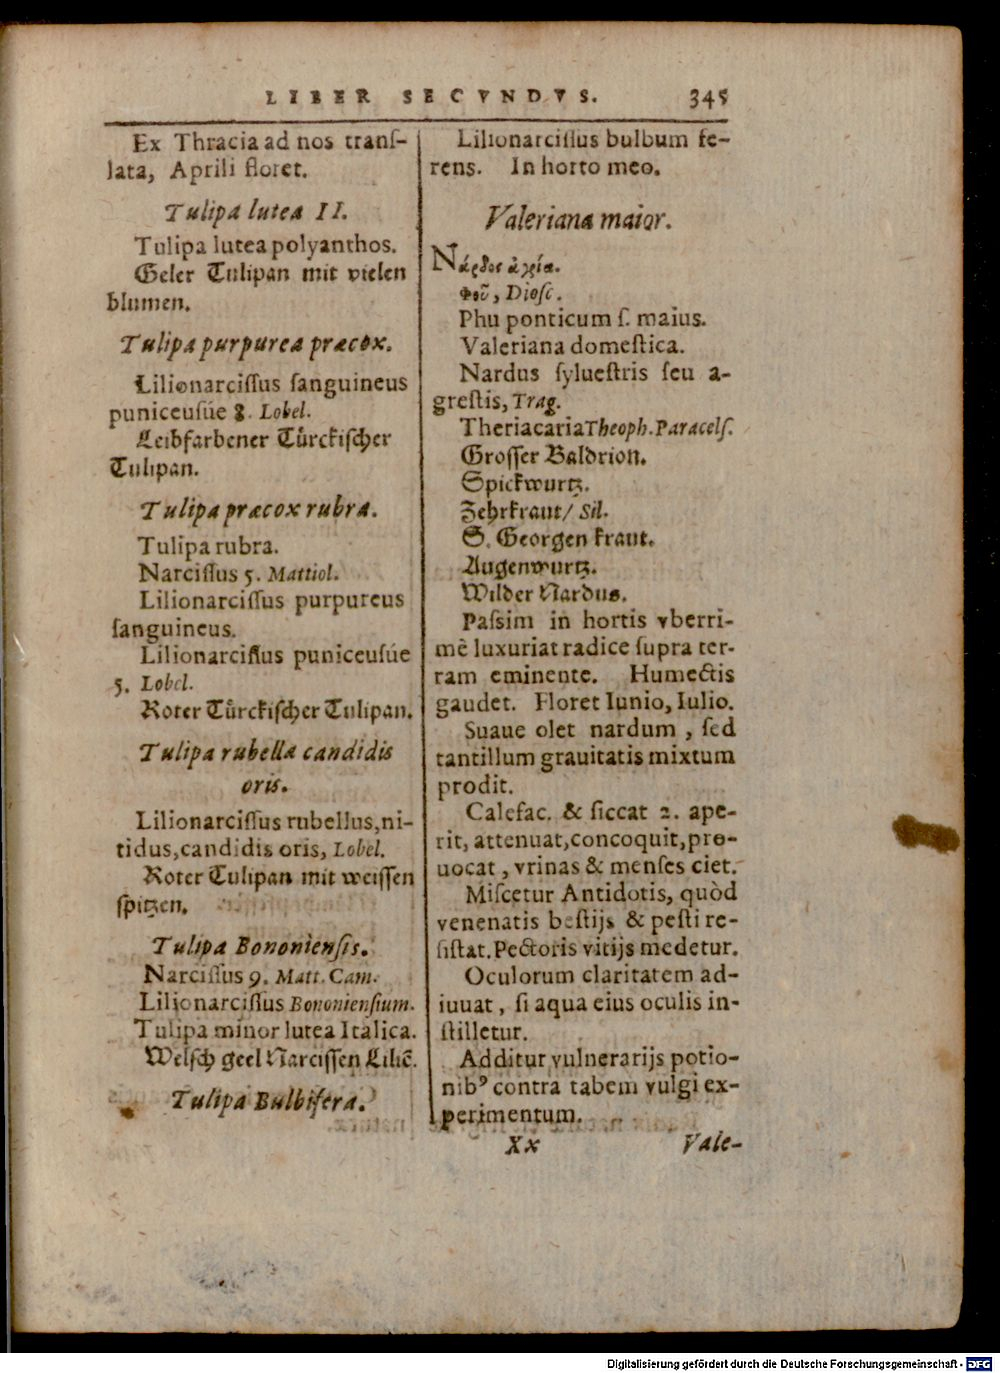 LIBER SECVNDVS. 345
Ex Thracia ad nos tranſ-
lata, Aprili floret.
Tulipa lutea II.
Tulipa lutea polyanthos.
Geler Tulipan mit vielen
blumen.
Tulipa purpurea præcox.
Lilionarciſſus ſanguineus
puniceuſúe 8. Lobel.
Leibfarbener Türckiſcher
Tulipan.
Tulipa præcox rubra.
Tulipa rubra.
Narciſſus 5. Mattiol.
Lilionarciſſus purpureus
ſanguineus.
Lilionarciſſus puniceuſúe
5. Lobel.
Roter Türckiſcher Tulipan.
Tulipa rubella candidis
oris.
Lilionarciſſus rubellus, ni-
tidus, candidis oris, Lobel.
Roter Tulipan mit weiſſen
ſpitzen.
Tulipa Bononienſis.
Narciſſus 9. Matt. Cam.
Lilionarciſſus Bononienſium.
Tulipa minor lutea Italica.
Welſch geel Narciſſen Liliē.
Tulipa Bulbifera.
Lilionarciſſus bulbum fe-
rens. In horto meo.
Valeriana maior.
Νάρδος ἀγρία.
Φοῦ, Dioſc.
Phu ponticum ſ. maius.
Valeriana domeſtica.
Nardus ſylueſtris ſeu a-
greſtis, Trag.
Theriacaria Theoph. Paracelſ.
Groſſer Baldrion.
Spickwurtz.
Zehrkraut/ Sil.
S. Georgen kraut.
Augenwurtz.
Wilder Nardus.
Paſsim in hortis vberri-
mê luxuriat radice ſupra ter-
ram eminente. Humectis
gaudet. Floret Iunio, Iulio.
Suaue olet nardum, ſed
tantillum grauitatis mixtum
prodit.
Calefac. & ſiccat 2. ape-
rit, attenuat, concoquit, pro-
uocat, vrinas & menſes ciet.
Miſcetur Antidotis, quòd
venenatis beſtijs & peſti re-
ſiſtat. Pectoris vitijs medetur.
Oculorum claritatem ad-
iuuat, ſi aqua eius oculis in-
ſtilletur.
Additur vulnerarijs potio-
nibꝰ contra tabem vulgi ex-
perimentum.
Xx Vale-
Digitalisierung gefördert durch die Deutsche Forschungsgemeinschaft - DFG